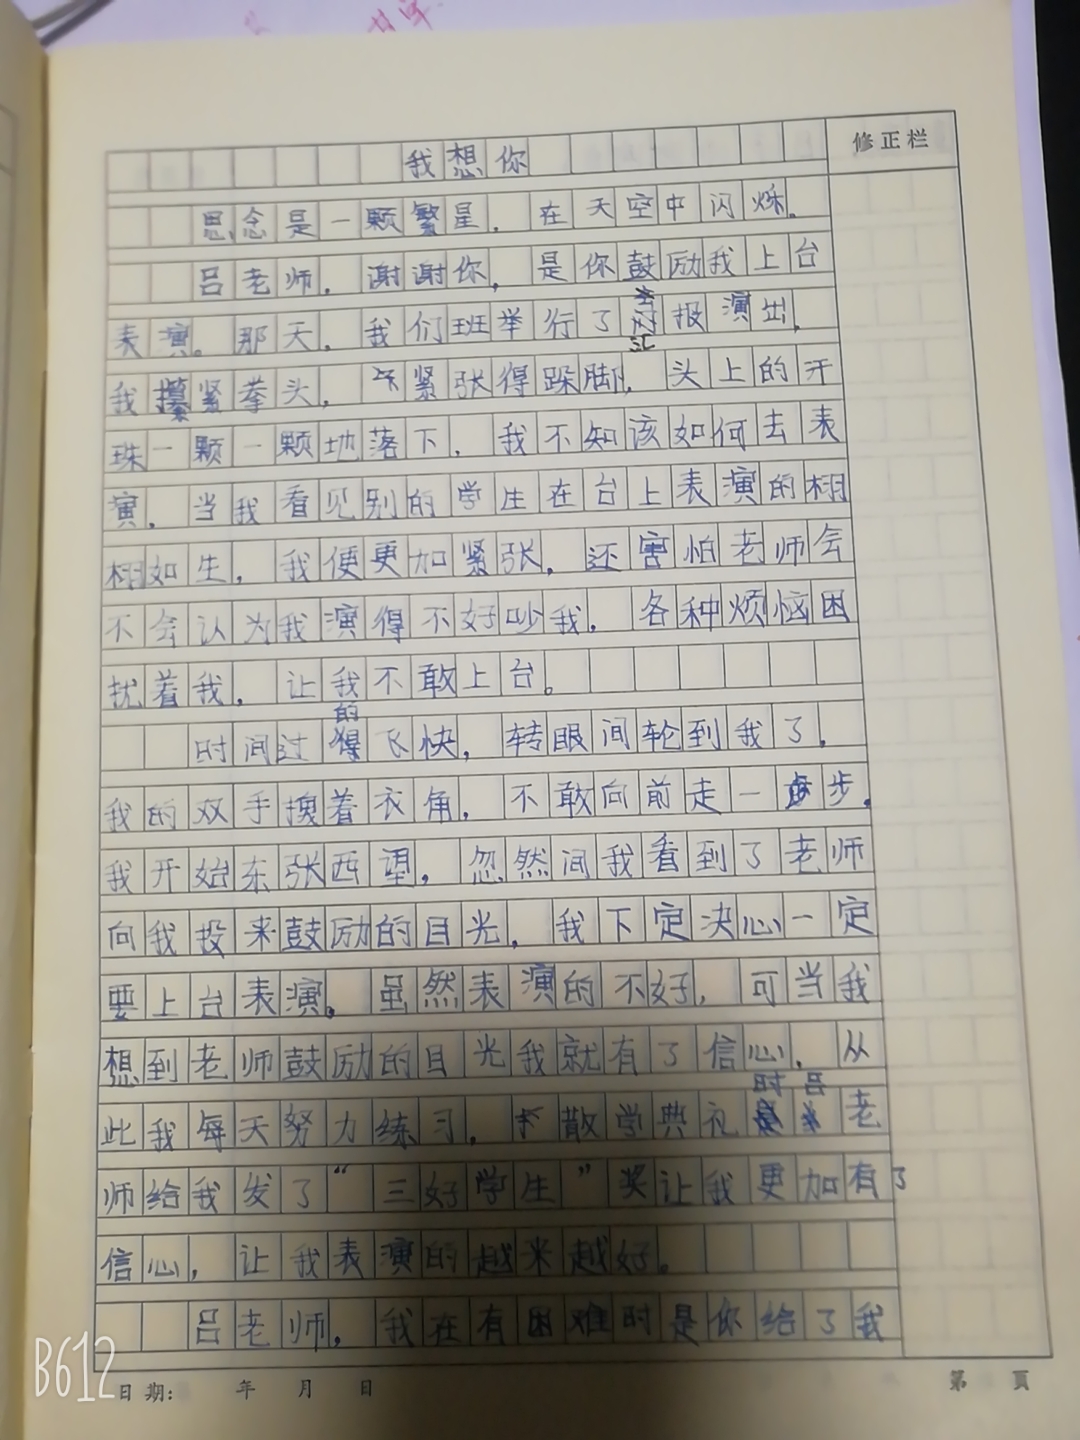 我想你
修正栏
思念是一颗繁星，在天空中闪烁。
吕老师，谢谢你，是你鼓励我上台
表演。那天，我们班举行了汇报演出，
我攥紧拳头，紧张得跺脚，头上的汗
珠一颗一颗地落下，我不知该如何去表
演，当我看见别的学生在台上表演的栩
栩如生，我便更加紧张，还害怕老师会
不会认为我演得不好吵我。各种烦恼困
扰着我，让我不敢上台。
时间过的飞快，转眼间轮到我了，
我的双手搜着衣角，不敢向前走一步。
我开始东张西望，忽然间我看到了老师
向我投来鼓励的目光，我下定决心一定
要上台表演。虽然表演的不好，可当我
想到老师鼓励的目光我就有了信心，从
此我每天努力练习，散学典礼时吕老
师给我发了“三好学生”奖让我更加有了
信心，让我表演的越来越好。
吕老师，我在有困难时是你给了我
B612
日期： 年 月 日
第 页